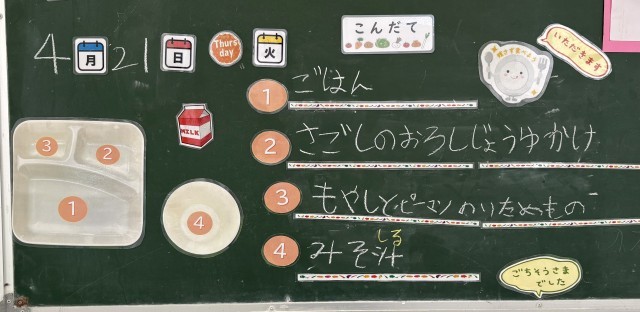 4月21日 Thursday 火
こんだて
いただきます
MILK
① ごはん
② さごしのおろしじょうゆかけ
③ もやしとピーマンのいためもの
④ みそ汁
しる
3 2
1
4
ごちそうさまでした